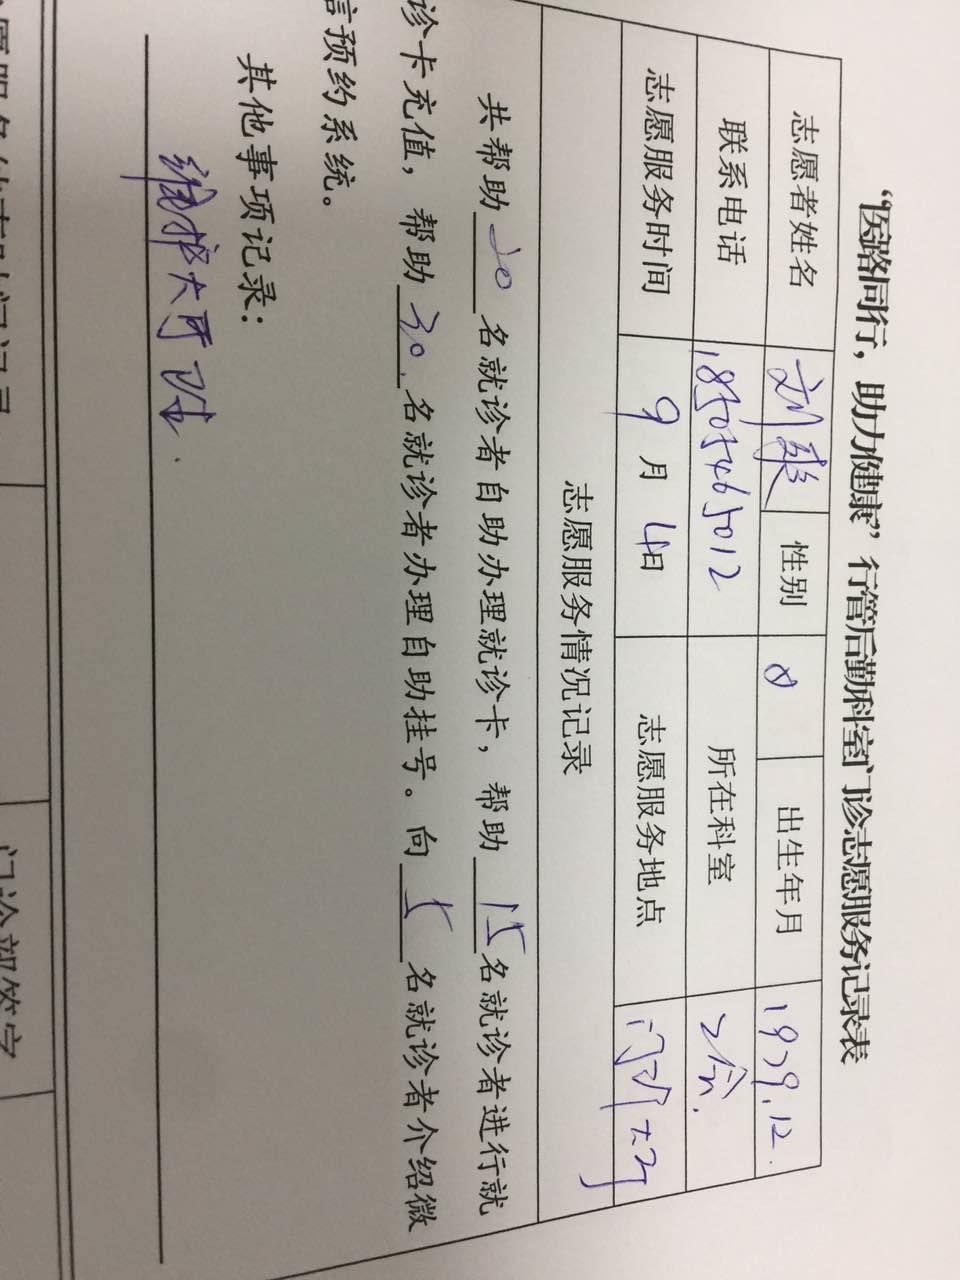 “医路同行，助力健康”行管后勤科室门诊志愿服务记录表
志愿者姓名 刘 性别 出生年月 1979.12.
联系电话 18505465012 所在科室
志愿服务时间 9月4日 志愿服务地点 门诊大厅
志愿服务情况记录
共帮助20名就诊者自助办理就诊卡，帮助15名就诊者进行就
诊卡充值，帮助30.名就诊者办理自助挂号。向5名就诊者介绍微
信预约系统。
其他事项记录：
维护大厅卫生.
门诊部签字